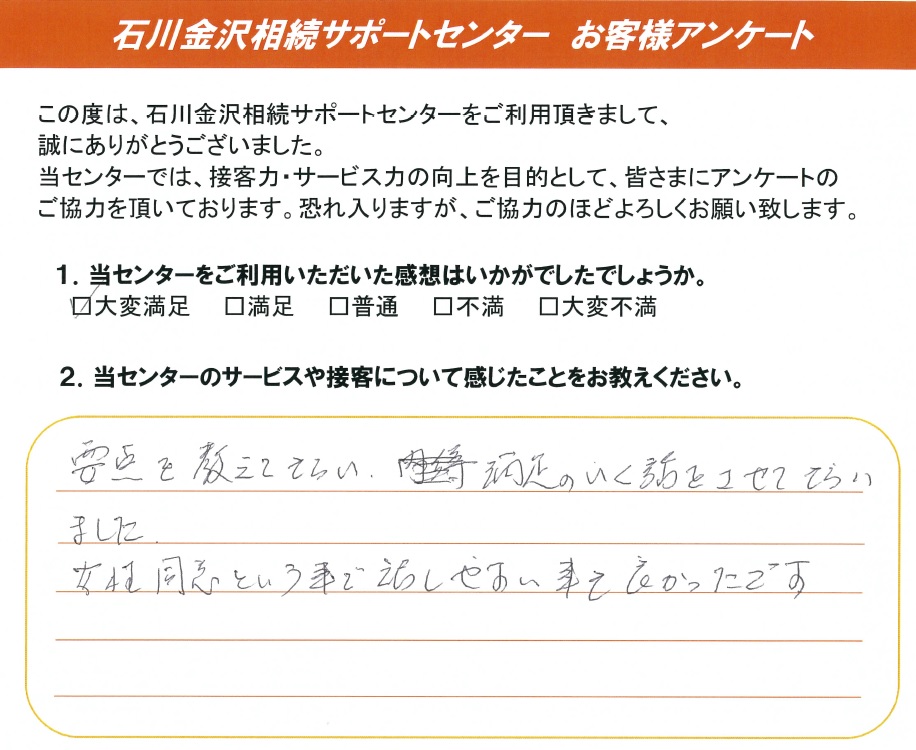 石川金沢相続サポートセンター お客様アンケート
この度は、石川金沢相続サポートセンターをご利用頂きまして、
誠にありがとうございました。
当センターでは、接客力・サービス力の向上を目的として、皆さまにアンケートの
ご協力を頂いております。恐れ入りますが、ご協力のほどよろしくお願い致します。
1. 当センターをご利用いただいた感想はいかがでしたでしょうか。
☑大変満足 □満足 □普通 □不満 □大変不満
2. 当センターのサービスや接客について感じたことをお教えください。
要点を教えてもらい、満足のいく話をさせてもらい
ました.
女性同志という事で話しやすい事も良かったです